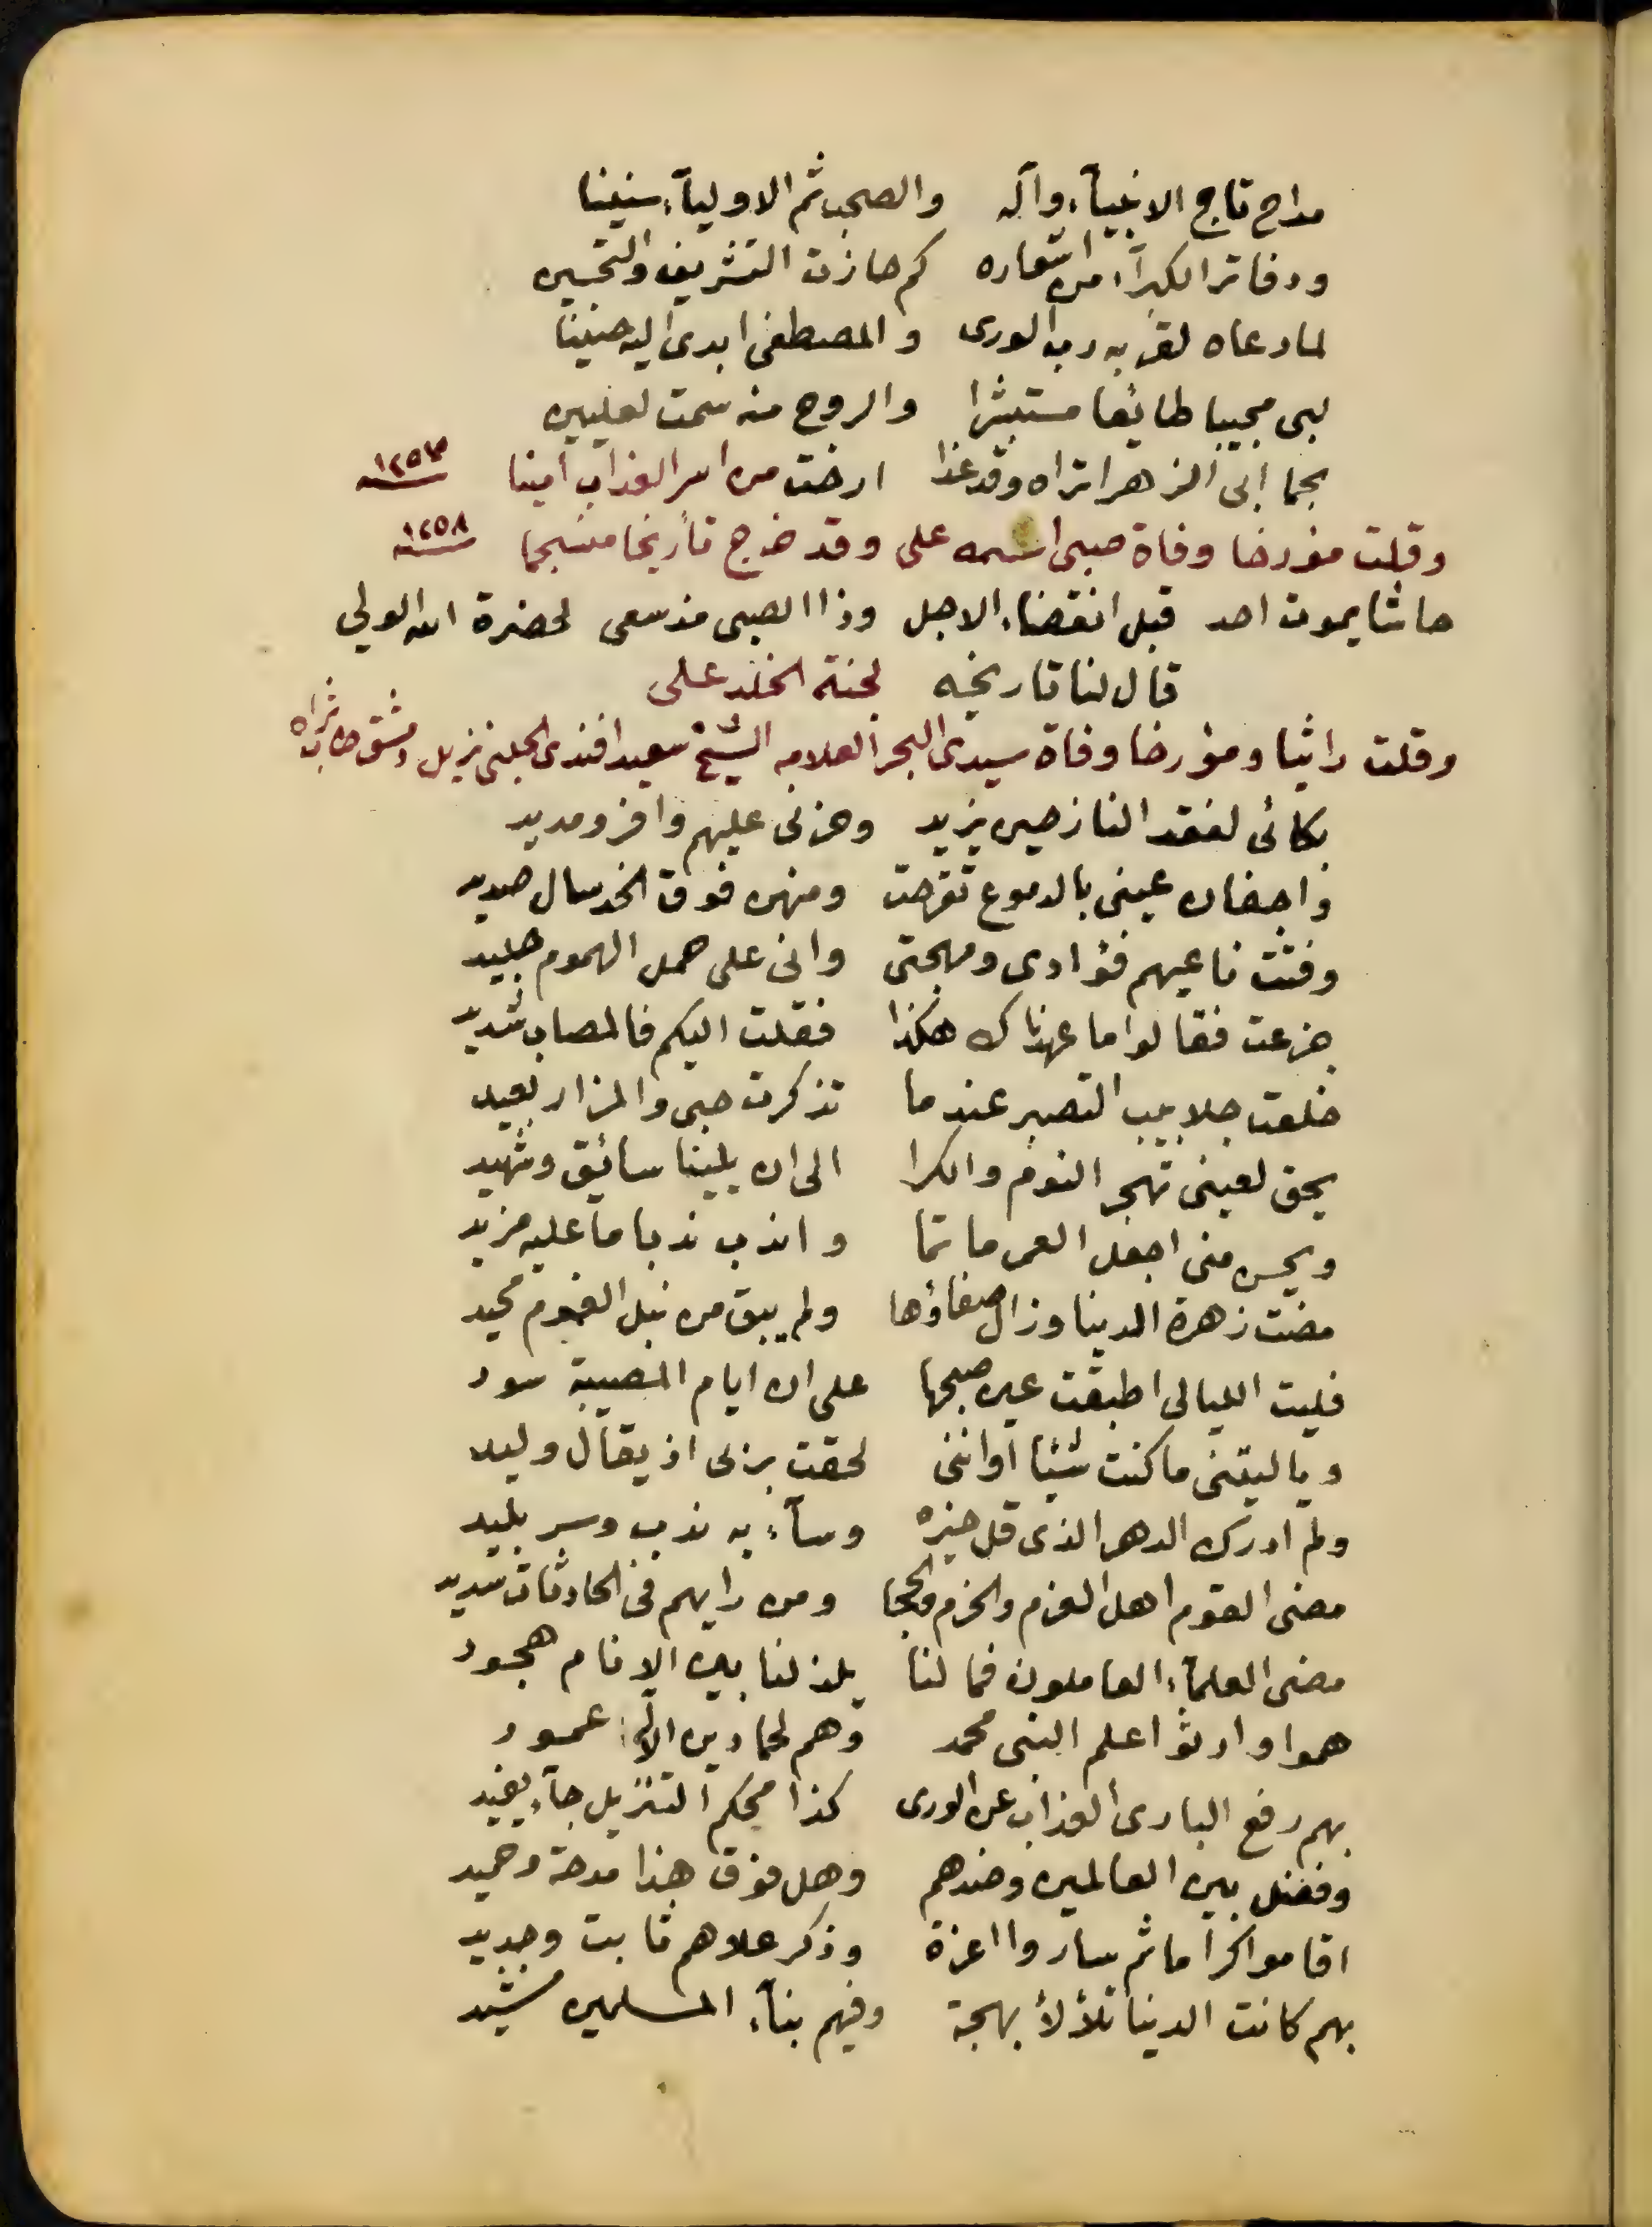 مداح تاج الانبيآء وآله والصحب ثم الاوليآء سنينا
ودفاتر الكبرآء من اشعاره كم حازت التشريف والتحسين
لما دعاه لقربه رب الورى والمصطفى ابدى اليه حنينا
لبى مجيبا طائعا مستبشرا والروح منه سمت لعليين
بحما ابى الزهرا تراه وقد غدا ارخت من اسر العذاب امينا سنة ١٢٥٣
وقلت مؤرخا وفاة صبى اسمه على وقد خرج تاريخا منسجما سنة ١٢٥٨
حاشا يموت احد قبل انقضاء الاجل وذا الصبى مذ سعى لحضرة الله الولي
قال لنا تاريخه لجنة الخلد على
وقلت راثيا ومؤرخا وفاة سيدى البحر العلامه الشيخ سعيد افندى الحلبى نزيل دمشق طاب ثراه
بكائى لفقد النازحين يزيد وحزنى عليهم وافر ومديد
واجفان عينى بالدموع تقرحت ومنهن فوق الخد سال صديد
وفتت ناعيهم فؤادى ومهجتى وانى على حمل الهموم جليد
جزعت فقالوا ما عهدناك هكذا فقلت اليكم فالمصاب شديد
خلعت جلابيب التصبر عندما تذكرت حبى والمزار بعيد
يحق لعينى تهجر النوم والكرا الى ان يلينا سائق وشهيد
ويحسن منى اجعل العمر ماتما واندب ندبا ما عليه مزيد
مضت زهرة الدنيا وزال صفاؤها ولم يبق من نبل الهموم محيد
فليت الليالى اطبقت عين صبحها على ان ايام المصيبة سود
وياليتنى ما كنت شيئا او اننى لحقت بربى اذ يقال وليد
ولم ادرك الدهر الذى قل خيره وسآء به ندب وسر بليد
مضى القوم اهل العزم والحزم والحجا ومن رايهم فى الحادثات سديد
مضى العلمآء العاملون فما لنا يلذ لنا بين الانام هجود
هموا وارثوا علم النبى محمد وهم لحما دين الاله عمود
بهم رفع البارى العذاب عن الورى كذا محكم التنزيل جآء يفيد
وفضل بين العالمين وضدهم وهل فوق هذا مدحة وحميد
اقاموا كراما ثم ساروا اعزة وذكر علاهم ثابت وجديد
بهم كانت الدنيا تلألأ بهجة وفيهم بنآء المسلمين مشيد